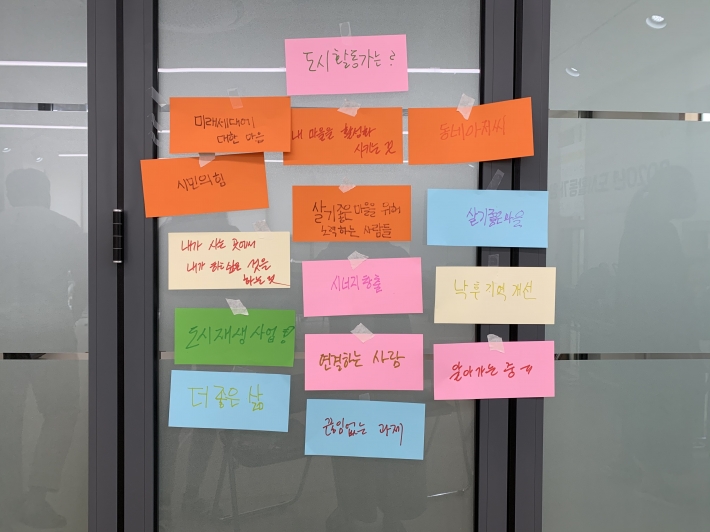 도시활동가는?
미래세대에
대한 마음
내 마을을 활성화
시키는 것
동네아저씨
시민의 힘
살기좋은 마을을 위해
노력하는 사람들
살기좋은마을
내가 사는 곳에서
내가 하고싶은 것을
하는 것
시너지창출
낙후 지역 개선
도시재생사업!?
연결하는 사람
알아가는 중
더 좋은 삶
끊임없는 과제